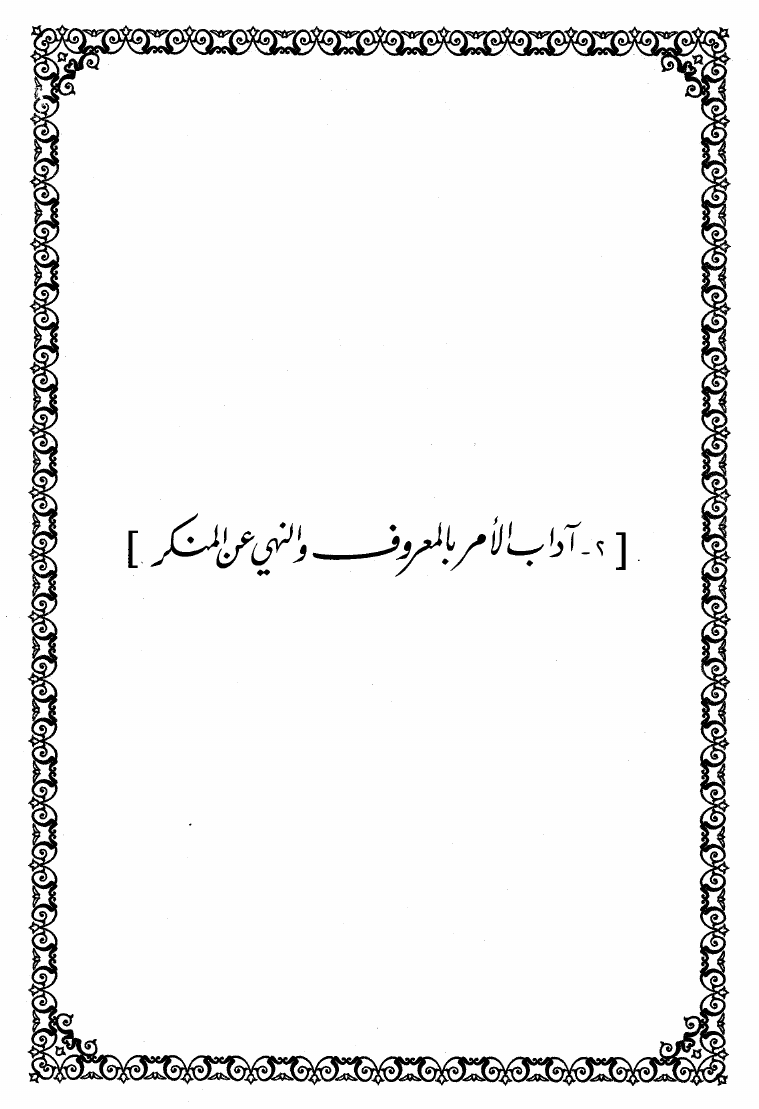 [ ٢ - آداب الأمر بالمعروف والنهي عن المنكر ]